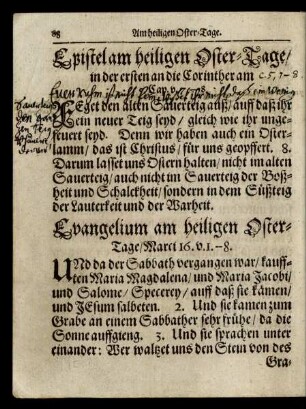 68 Am heiligen Oster-Tage.
Epistel am heiligen Oster-Tage/
in der ersten an die Corinther am
c. 5, 7-8.
Euer Ruhm ist nicht fein
FEget den alten Sauerteig auß/ auff daß ihr
ein neuer Teig seyd/ gleich wie ihr unge-
säuert seyd. Denn wir haben auch ein Oster-
lamm/ das ist Christus/ für uns geopffert. 8.
Darum lasset uns Ostern halten/ nicht im alten
Sauerteig/ auch nicht im Sauerteig der Boß-
heit und Schalckheit/ sondern in dem Süßteig
der Lauterkeit und der Warheit.
Evangelium am heiligen Oster-
Tage/ Marci 16. v. 1.-8.
UNd da der Sabbath vergangen war/ kauff-
ten Maria Magdalena/ und Maria Jacobi/
und Salome/ Specerey/ auff daß sie kämen/
und JEsum salbeten. 2. Und sie kamen zum
Grabe an einem Sabbather sehr frühe/ da die
Sonne auffgieng. 3. Und sie sprachen unter
einander: Wer waltzet uns den Stein von des
Gra-